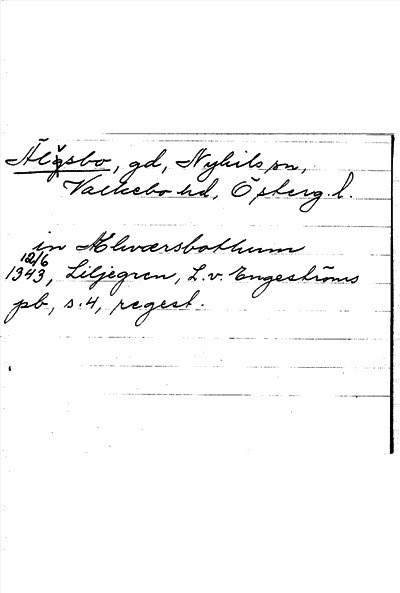 Älgsbo, gd, Nykils sn,
Valkebo hd, Österg. l.
in Alwærsbothum
12/6
1343, Liljegren, L. v. Engeströms
pb, s. 4, regest.